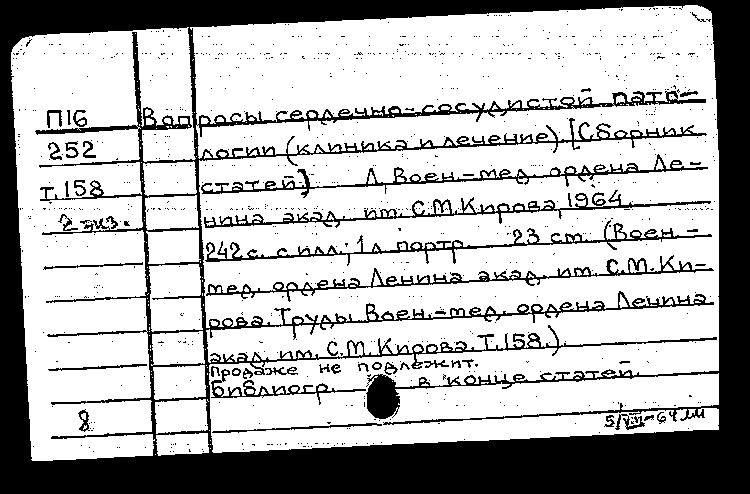 П16 Вопросы сердечно-сосудистой пато-
252 логии (клиника и лечение). [Сборник
т.158 статей] Л., Воен.-мед. ордена Ле-
2 экз. нина акад. им. С.М.Кирова, 1964.
242 с. с илл.; 1 л. портр. 23 см. (Воен.-
мед. ордена Ленина акад. им. С.М.Ки-
рова. Труды Воен.-мед. ордена Ленина
акад. им. С.М.Кирова. Т.158.).
Продаже не подлежит.
Библиогр. в конце статей.
8
5/VII-64